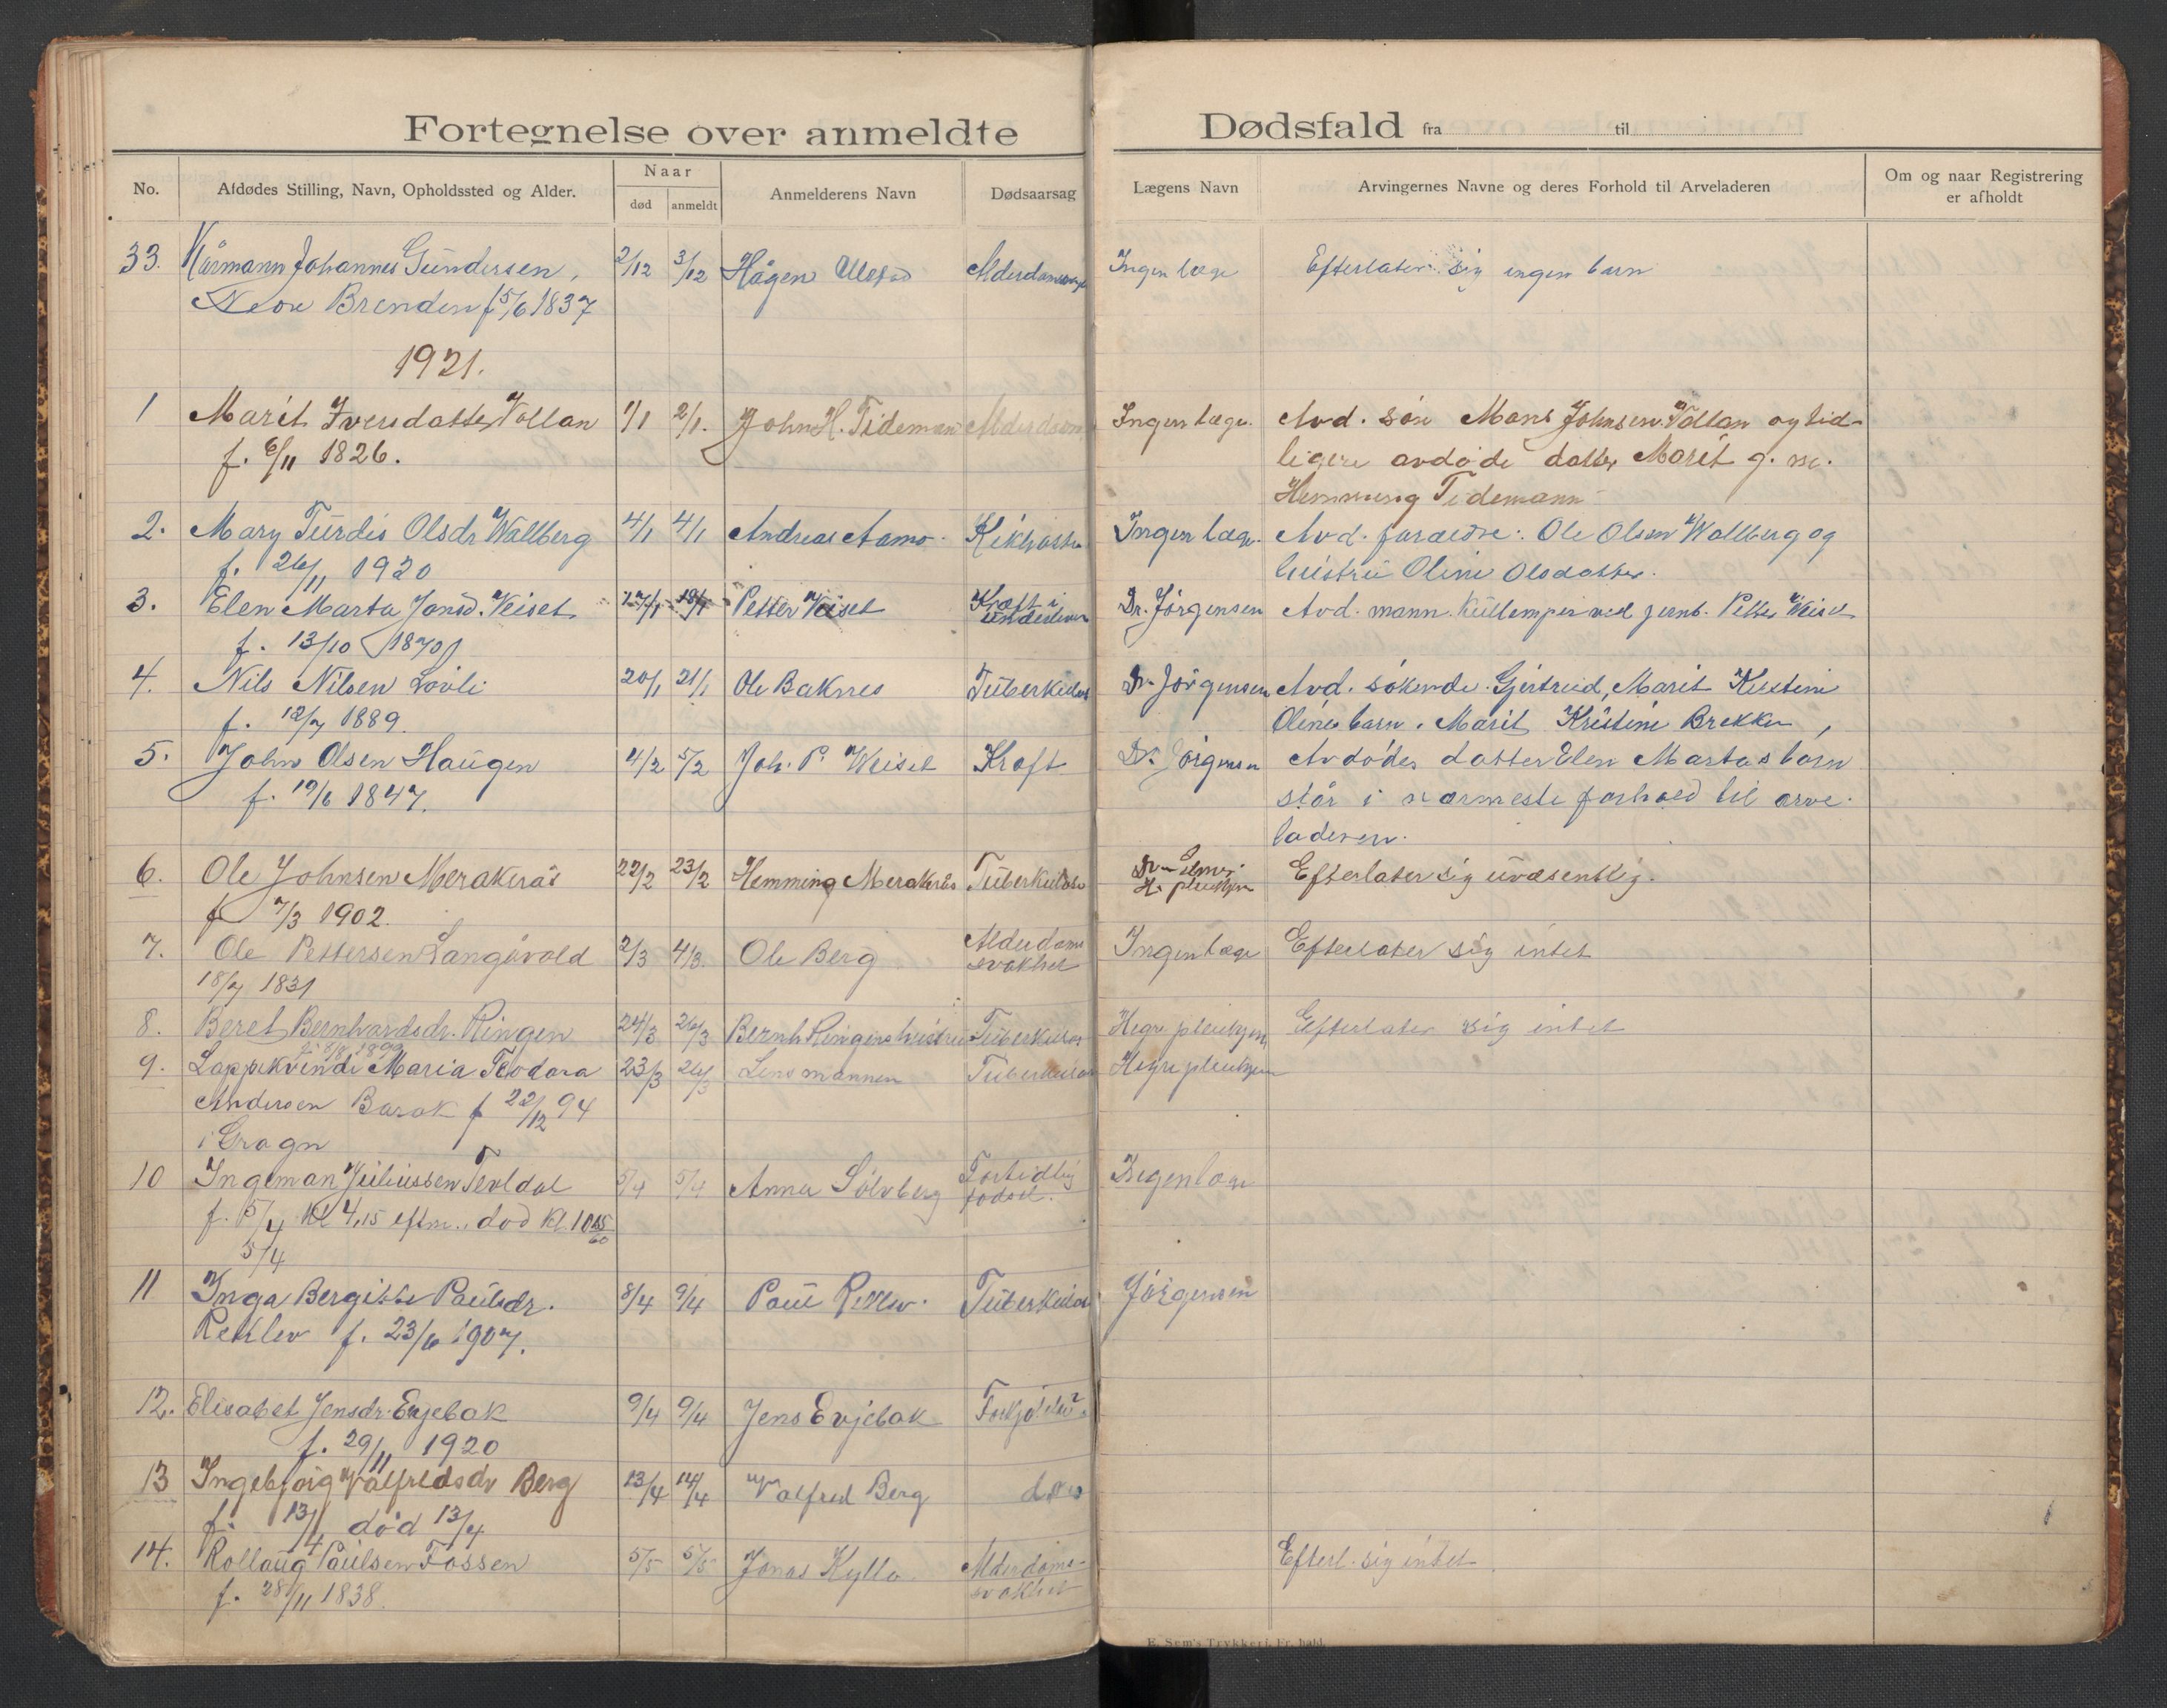 Fortegnelse over anmeldte Dødsfald fra til
No. Afdødes Stilling, Navn, Opholdssted og Alder. Naar død anmeldt Anmelderens Navn Dødsaarsag Lægens Navn Arvingernes Navne og deres Forhold til Arveladeren Om og naar Registrering er afholdt
33. Kårmann Johannes Gundersen, 2/12 3/12 Hågen Ulstad Alderdomssvagh Ingen læge Efterlater sig ingen barn
Brenden f 5/6 1837
1921.
1 Marit Iversdatter Vollan 1/1 2/1. John H. Tideman Alderdom Ingen læge. Avd. søn Mons Johnsen Vollan og tid-
f. 6/11 1826. ligere avdøde datter Marit g. m.
Hemming Tidemann
2. Mary Turdis Olsdr Wallberg 4/1 4/1 Andreas Aamo. Kikhoste Ingen læge. Avd. forældre: Ole Olsen Wallberg og
f. 26/11 1920 hustru Oline Olsdatter.
3. Elen Marta Jonsd. Veiset 17/1 19/1 Petter Veiset Kræft i underliver Dr. Jörgensen Avd. mann. Kullemper ved jernb. Petter Weiset
f. 13/10 1870
4. Nils Nilsen Lövli 20/1 21/1 Ole Baknes Tuberkulos Dr. Jörgensen Avd. søkende. Gjertrud, Marit Kristine
f. 12/7 1889. Olines barn. Marit Kristine Brekken,
5. John Olsen Haugen 4/2 5/2 Joh. P. Weiset Kræft Dr. Jörgensen Avdødes datter Elen Martas barn
f. 19/6 1847. står i nærmeste forhold til arve-
laderen.
6. Ole Johnsen Meråkerås 22/2 23/2 Hemming Meråkerås Tuberkulose H. pleiehjem Efterlater sig uvæsentlig.
f 7/3 1902.
7. Ole Pettersen Langåvold 2/3 4/3. Ole Berg Alderdoms svakhet Ingen læge Efterlater sig intet
18/7 1831
8. Beret Bernhardsdr. Ringen 24/3 26/3 Bernh Ringens hustru Tuberkulos Hegre pleiehjem Efterlater sig intet
f. 8/8 1899
9. Lappekvinde Maria Teodora 23/3 26/3 Lensmannen Tuberkulos Hegre pleiehjem
Andersen Barok f 22/12 94
10 Ingeman Juliussen Tevldal 5/4 5/4 Anna Sölvberg Fortidlig födsel. Ingen læge
f. 5/4 Kl 4,15 eftm., död Kl. 10 45/60
5/4
11 Inga Bergitte Paulsdr. 8/4 9/4 Paul Reklev. Tuberkulos Jörgensen
Reklev f. 23/6 1907.
12. Elisabet Jensdr. Evjebak 9/4 9/4 Jens Evjebak Forkjölelse
f. 29/11 1920
13 Ingebjörg Valfredsdr Berg 13/4 14/4 Valfred Berg
f. 13/4 död 13/4
14. Rollaug Paulsen Fossen 5/5 5/5 Jonas Kyllo Alderdoms- svakhet Efterl. sig intet
f. 28/11 1838.
E. Sem's Trykkeri, Fr.hald.